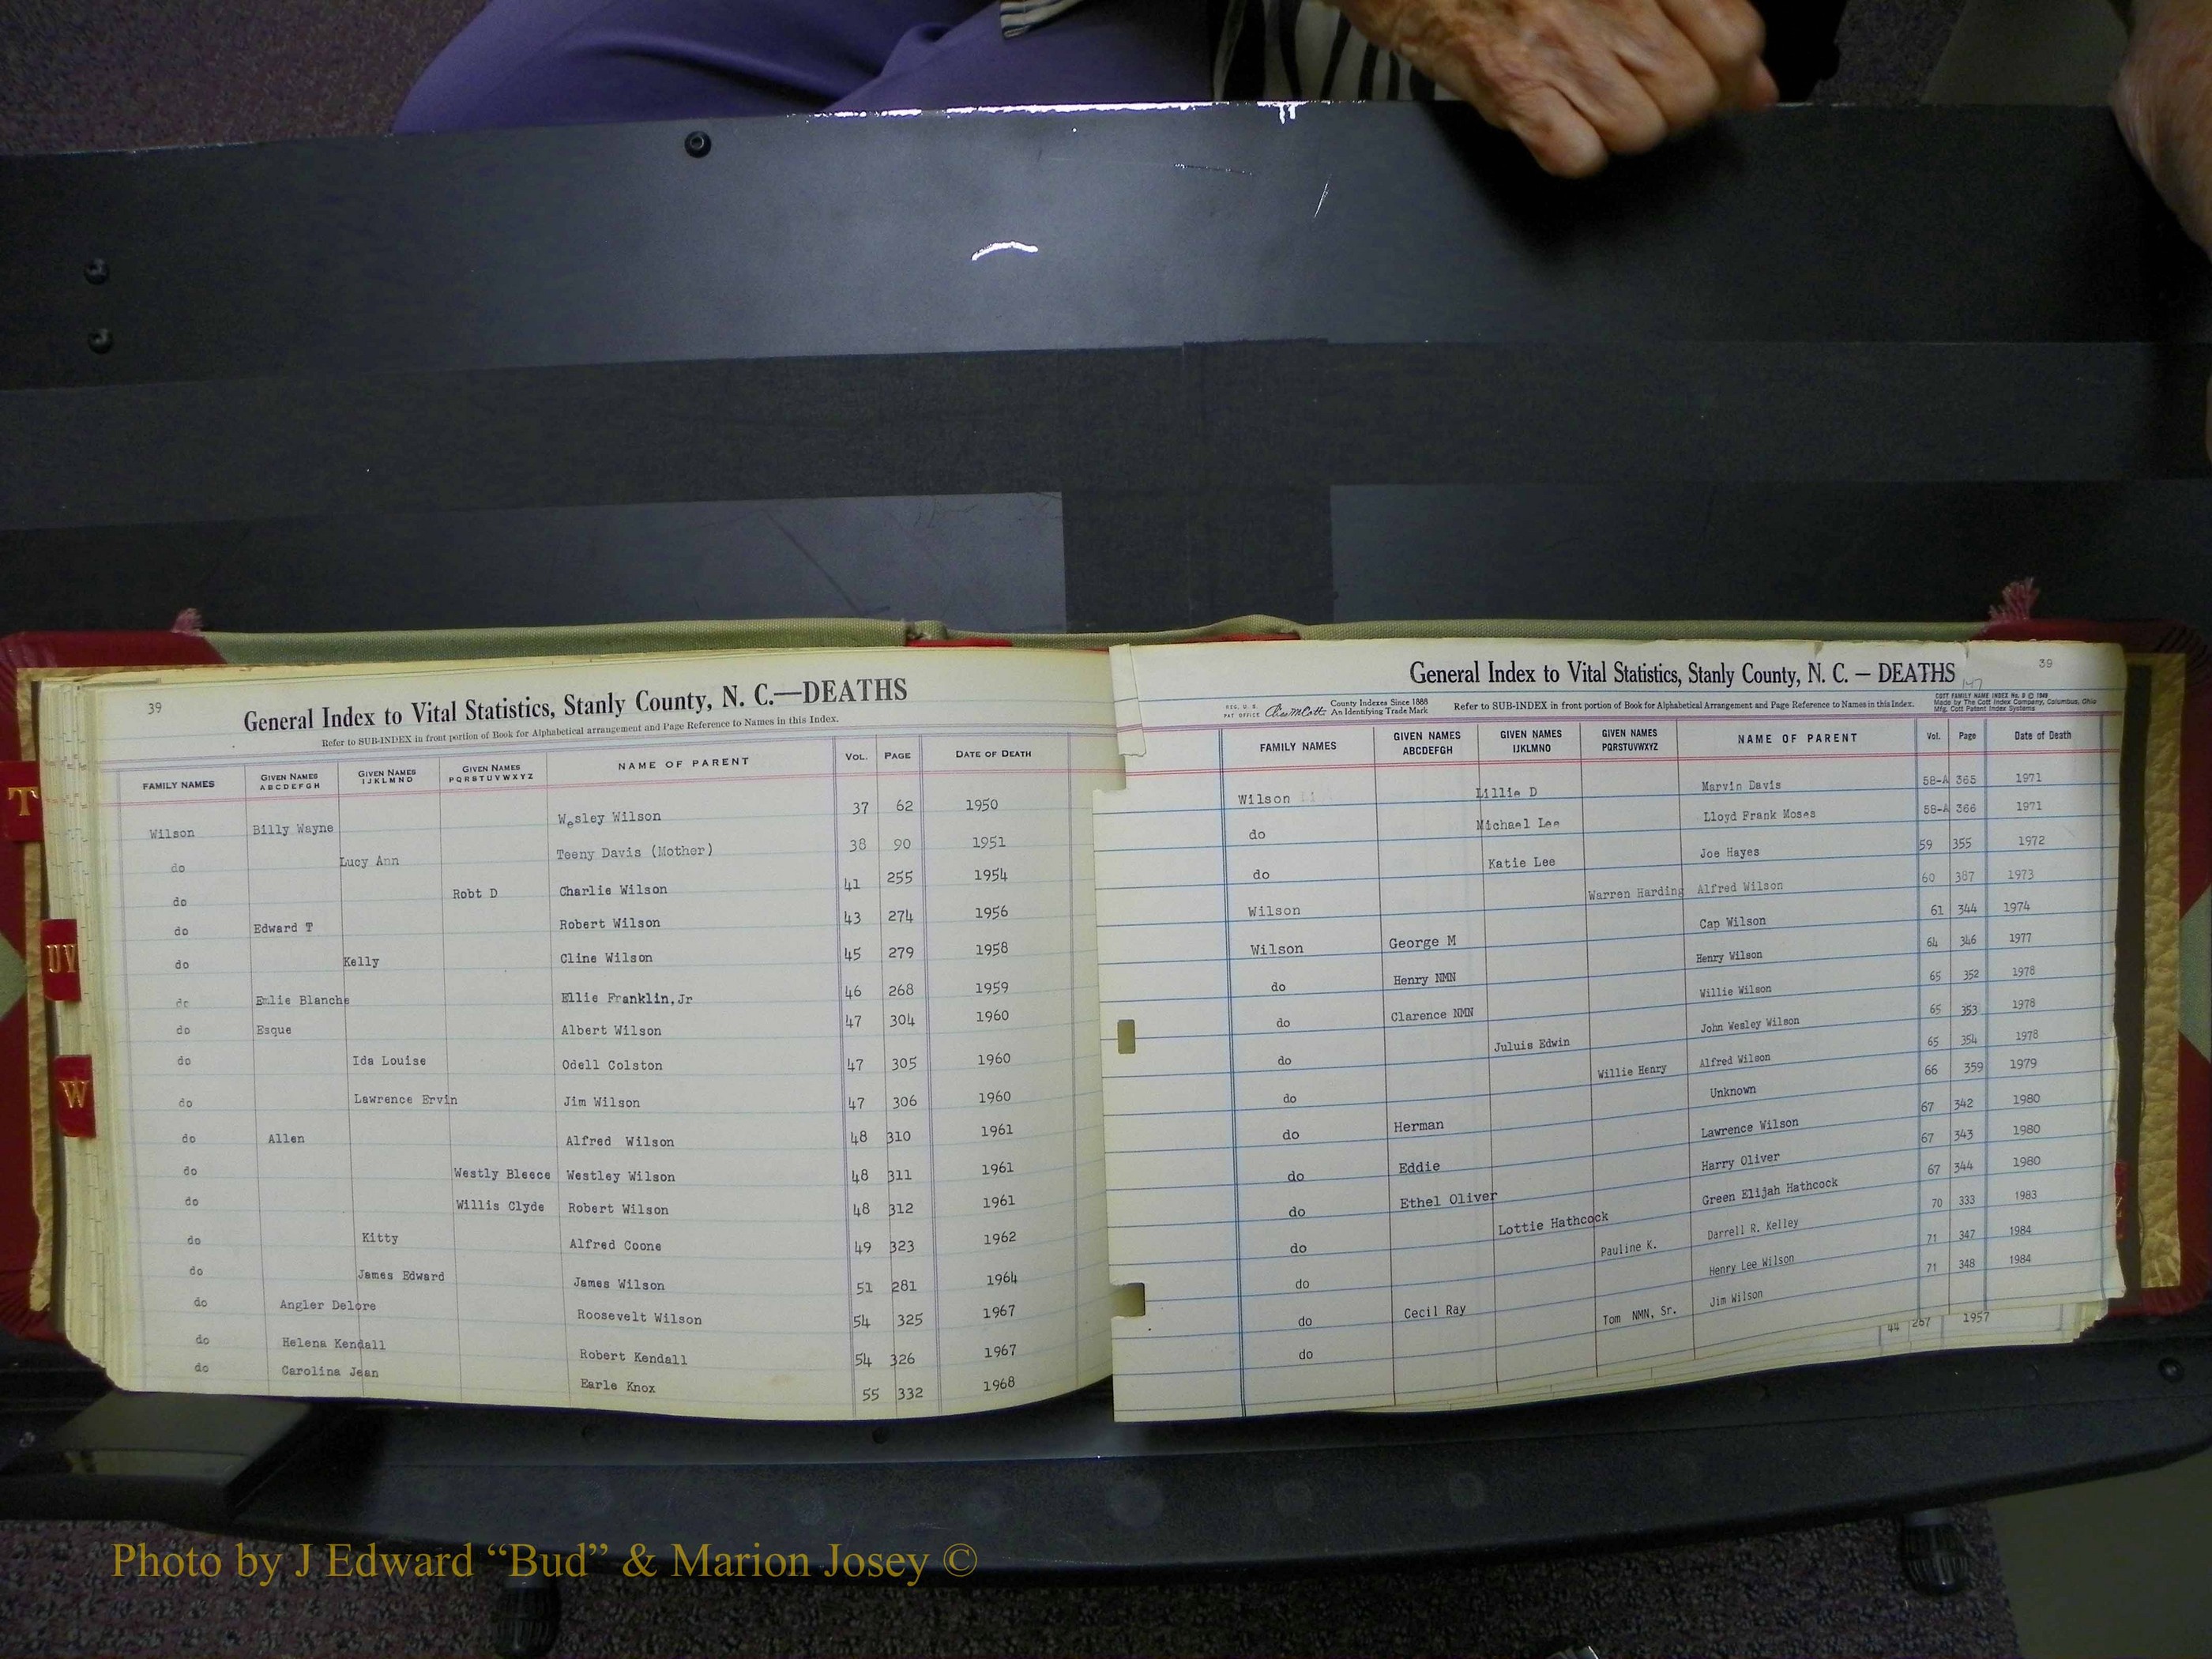 39
General Index to Vital Statistics, Stanly County, N. C.—DEATHS
Refer to SUB-INDEX in front portion of Book for Alphabetical arrangement and Page Reference to Names in this Index.
FAMILY NAMES GIVEN NAMES ABCDEFGH GIVEN NAMES IJKLMNO GIVEN NAMES PQRSTUVWXYZ NAME OF PARENT VOL. PAGE DATE OF DEATH
Wilson Billy Wayne Wesley Wilson 37 62 1950
do Lucy Ann Teeny Davis (Mother) 38 90 1951
do Robt D Charlie Wilson 41 255 1954
do Edward T Robert Wilson 43 274 1956
do Kelly Cline Wilson 45 279 1958
do Emlie Blanche Ellie Franklin,Jr 46 268 1959
do Esque Albert Wilson 47 304 1960
do Ida Louise Odell Colston 47 305 1960
do Lawrence Ervin Jim Wilson 47 306 1960
do Allen Alfred Wilson 48 310 1961
do Westly Bleece Westley Wilson 48 311 1961
do Willis Clyde Robert Wilson 48 312 1961
do Kitty Alfred Coone 49 323 1962
do James Edward James Wilson 51 281 1964
do Angler Delore Roosevelt Wilson 54 325 1967
do Helena Kendall Robert Kendall 54 326 1967
do Carolina Jean Earle Knox 55 332 1968
T
UV
W
39
General Index to Vital Statistics, Stanly County, N. C. — DEATHS
147
REG. U. S. PAT OFFICE County Indexes Since 1888 An Identifying Trade Mark
Refer to SUB-INDEX in front portion of Book for Alphabetical Arrangement and Page Reference to Names in this Index.
COTT FAMILY NAME INDEX No. 9 © 1949
Made by The Cott Index Company, Columbus, Ohio
Mfg. Cott Patent Index Systems
FAMILY NAMES GIVEN NAMES ABCDEFGH GIVEN NAMES IJKLMNO GIVEN NAMES PQRSTUVWXYZ NAME OF PARENT Vol. Page Date of Death
Wilson Lillie D Marvin Davis 58-A 365 1971
do Michael Lee Lloyd Frank Moses 58-A 366 1971
do Katie Lee Joe Hayes 59 355 1972
Wilson Warren Harding Alfred Wilson 60 387 1973
Wilson George M Cap Wilson 61 344 1974
do Henry NMN Henry Wilson 64 346 1977
do Clarence NMN Willie Wilson 65 352 1978
do Juluis Edwin John Wesley Wilson 65 353 1978
do Willie Henry Alfred Wilson 65 354 1978
do Herman Unknown 66 359 1979
do Eddie Lawrence Wilson 67 342 1980
do Ethel Oliver Harry Oliver 67 343 1980
do Lottie Hathcock Green Elijah Hathcock 67 344 1980
do Pauline K. Darrell R. Kelley 70 333 1983
do Cecil Ray Henry Lee Wilson 71 347 1984
do Tom NMN, Sr. Jim Wilson 71 348 1984
44 267 1957
Photo by J Edward “Bud” & Marion Josey ©